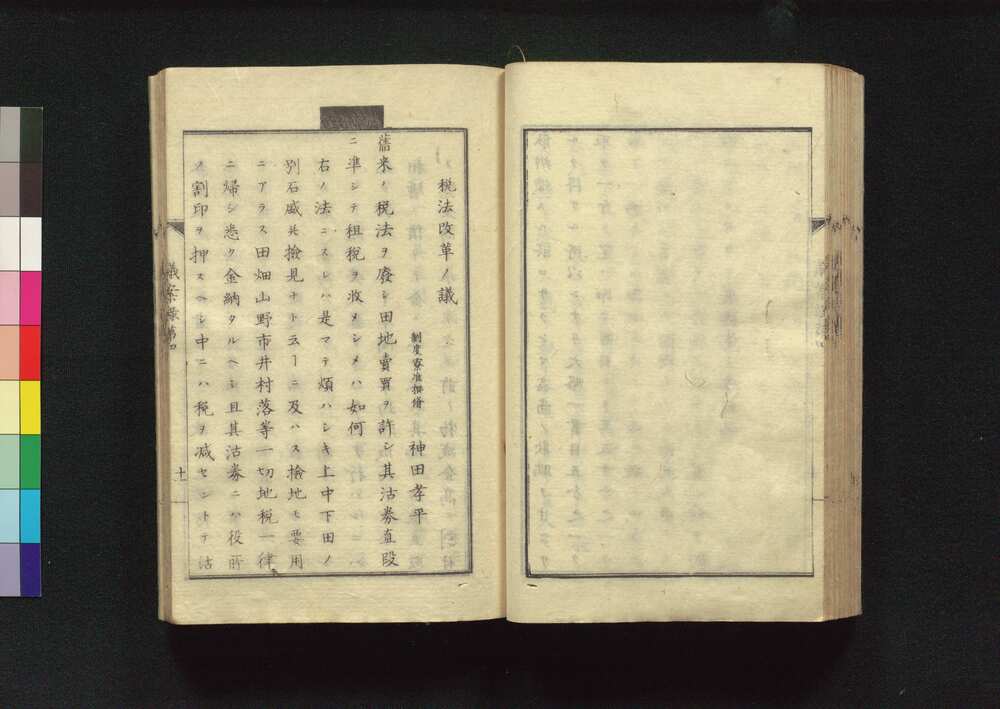 税法改革ノ議
制度寮准撰脩
神田孝平
舊来ノ税法ヲ廢シ田地賣買ヲ許シ其沽券直段
ニ準シテ租税ヲ收メシメハ如何
右ノ法ニスレハ是マテ煩ハシキ上中下田ノ
別石盛共撿見ナト云ーニ及ハス撿地モ要用
ニアラス田畑山野市井村落等一切地税一律
ニ歸シ悉ク金納タルヘシ且其沽券ニハ役所
ノ割印ヲ押スヘシ中ニハ税ヲ减セントテ沽
議案録第四
十一